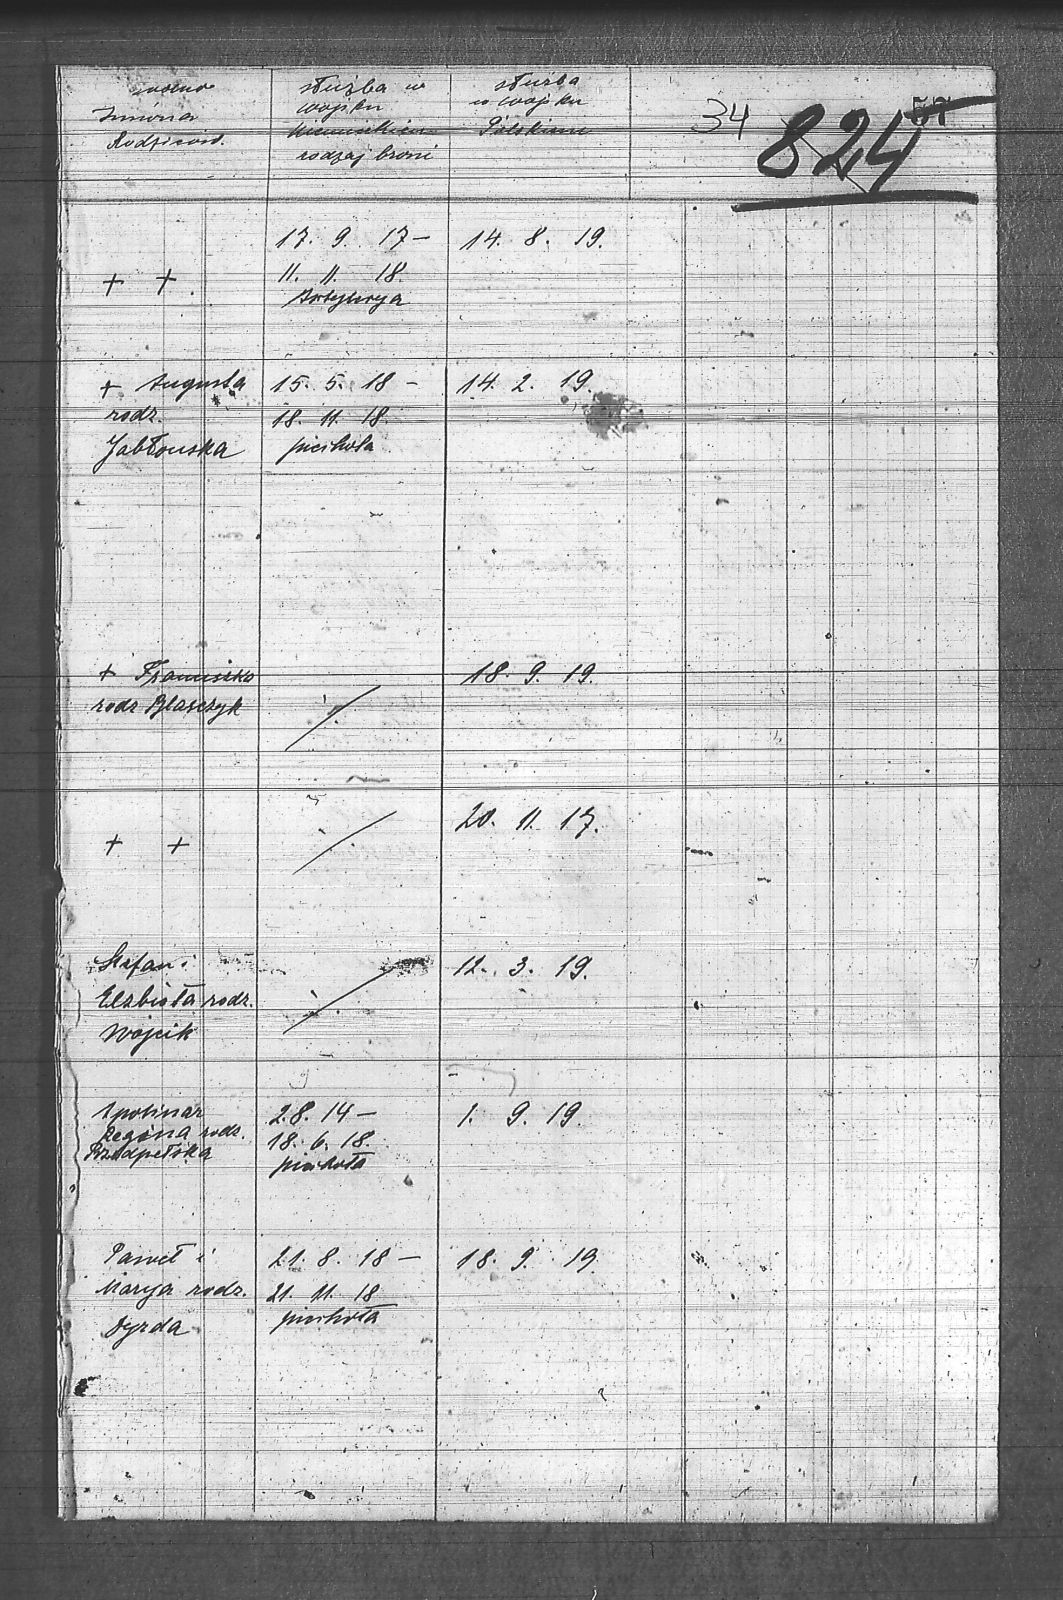 Imiona
Rodziców.
służba w
wojsku
Niemieckiem
rodzaj broni
służba
w wojsku
Polskiem
34
824
17. 9. 17 –
14. 8. 19.
+ +
11. 11. 18.
Artylerya
+ Augusta
15. 5. 18 –
14. 2. 19.
rodz.
18. 11. 18.
Jabłonska
piechota
+ Franciszka
18. 9. 19.
rodz Blaszczyk
20. 11. 17.
+ +
Stefan i
12. 3. 19.
Elzbieta rodz.
Wojcik
Apolinar
2.8. 14 –
1. 9. 19.
Regina rodz.
18. 6. 18.
piechota
Paweł i
21. 8. 18 –
18. 9. 19
Marya rodz.
21. 11. 18
Dyrda
piechota